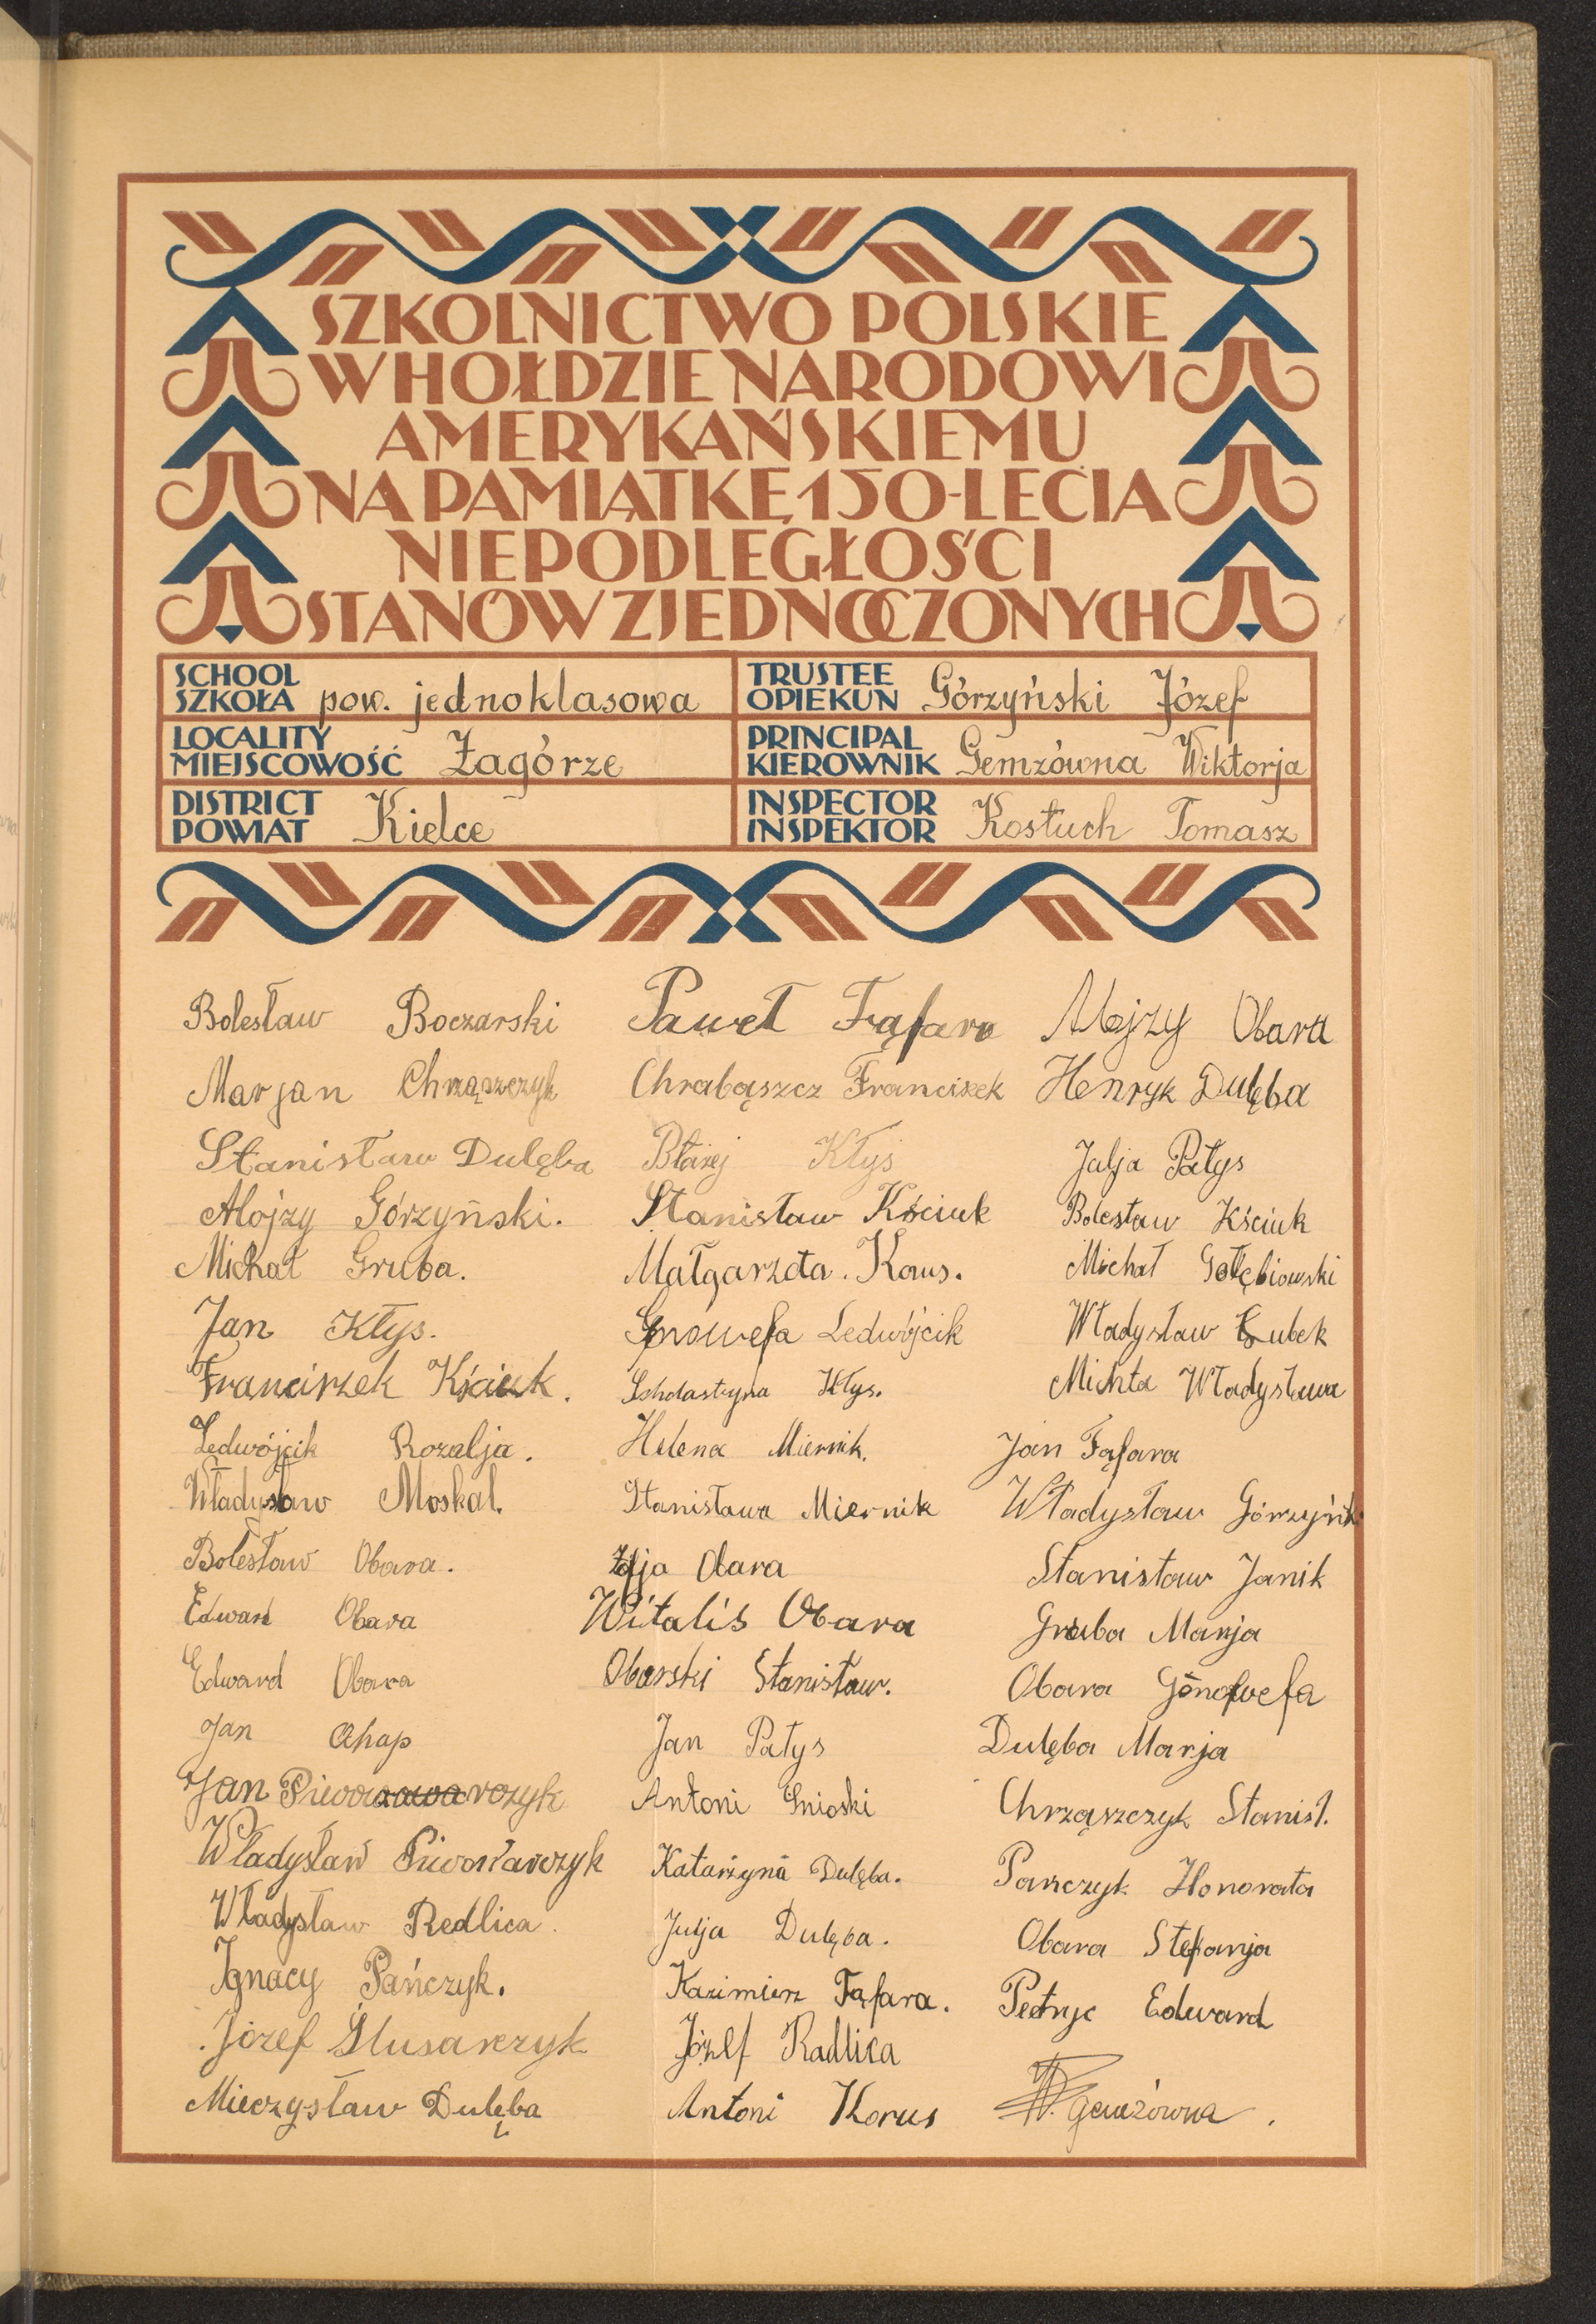 SZKOLNICTWO POLSKIE
W HOŁDZIE NARODOWI
AMERYKAŃSKIEMU
NA PAMIĄTKĘ 150-LECIA
NIEPODLEGŁOŚCI
STANÓW ZJEDNOCZONYCH
SCHOOL
SZKOŁA pow. jednoklasowa
TRUSTEE
OPIEKUN Górzyński Józef
LOCALITY
MIEJSCOWOŚĆ Zagórze
PRINCIPAL
KIEROWNIK Gemzówna Wiktorja
DISTRICT
POWIAT Kielce
INSPECTOR
INSPEKTOR Kostuch Tomasz
Bolesław Boczarski
Marjan Chrząszczyk
Stanisław Dulęba
Alojzy Górzyński.
Michał Gruba.
Jan Kłys.
Franciszek Kściuk.
Ledwójcik Rozalja.
Władysław Moskal.
Bolesław Obara.
Edward Obara
Edward Obara
Jan
Jan
Władysław Piwowarczyk
Władysław Redlica.
Ignacy Pańczyk.
Józef Ślusarczyk
Mieczysław Dulęba
Paweł Fąfara
Chrabąszcz Franciszek
Błażej Kłys
Stanisław Kściuk
Małgarzeta.
Ledwójcik
Scholastyna Kłys.
Helena Miernik.
Stanisława Miernik
Obara
Witalis Obara
Obarski Stanisław.
Jan Pałys
Antoni
Katarzyna Dulęba.
Julja Dulęba.
Kazimierz Fąfara.
Józef Radlica
Antoni Korus
Alojzy Obara
Henryk Dulęba
Julja Pałys
Bolesław Kściuk
Michał Gołębiowski
Władysław
Michta Władysława
Jan Fąfara
Władysław Górzyński
Stanisław Janik
Gruba Marja
Obara Genofwefa
Dulęba Marja
Chrząszczyk Stanisł.
Pańczyk Honorata
Obara Stefanja
Petryc Edward
W. Gemzówna.